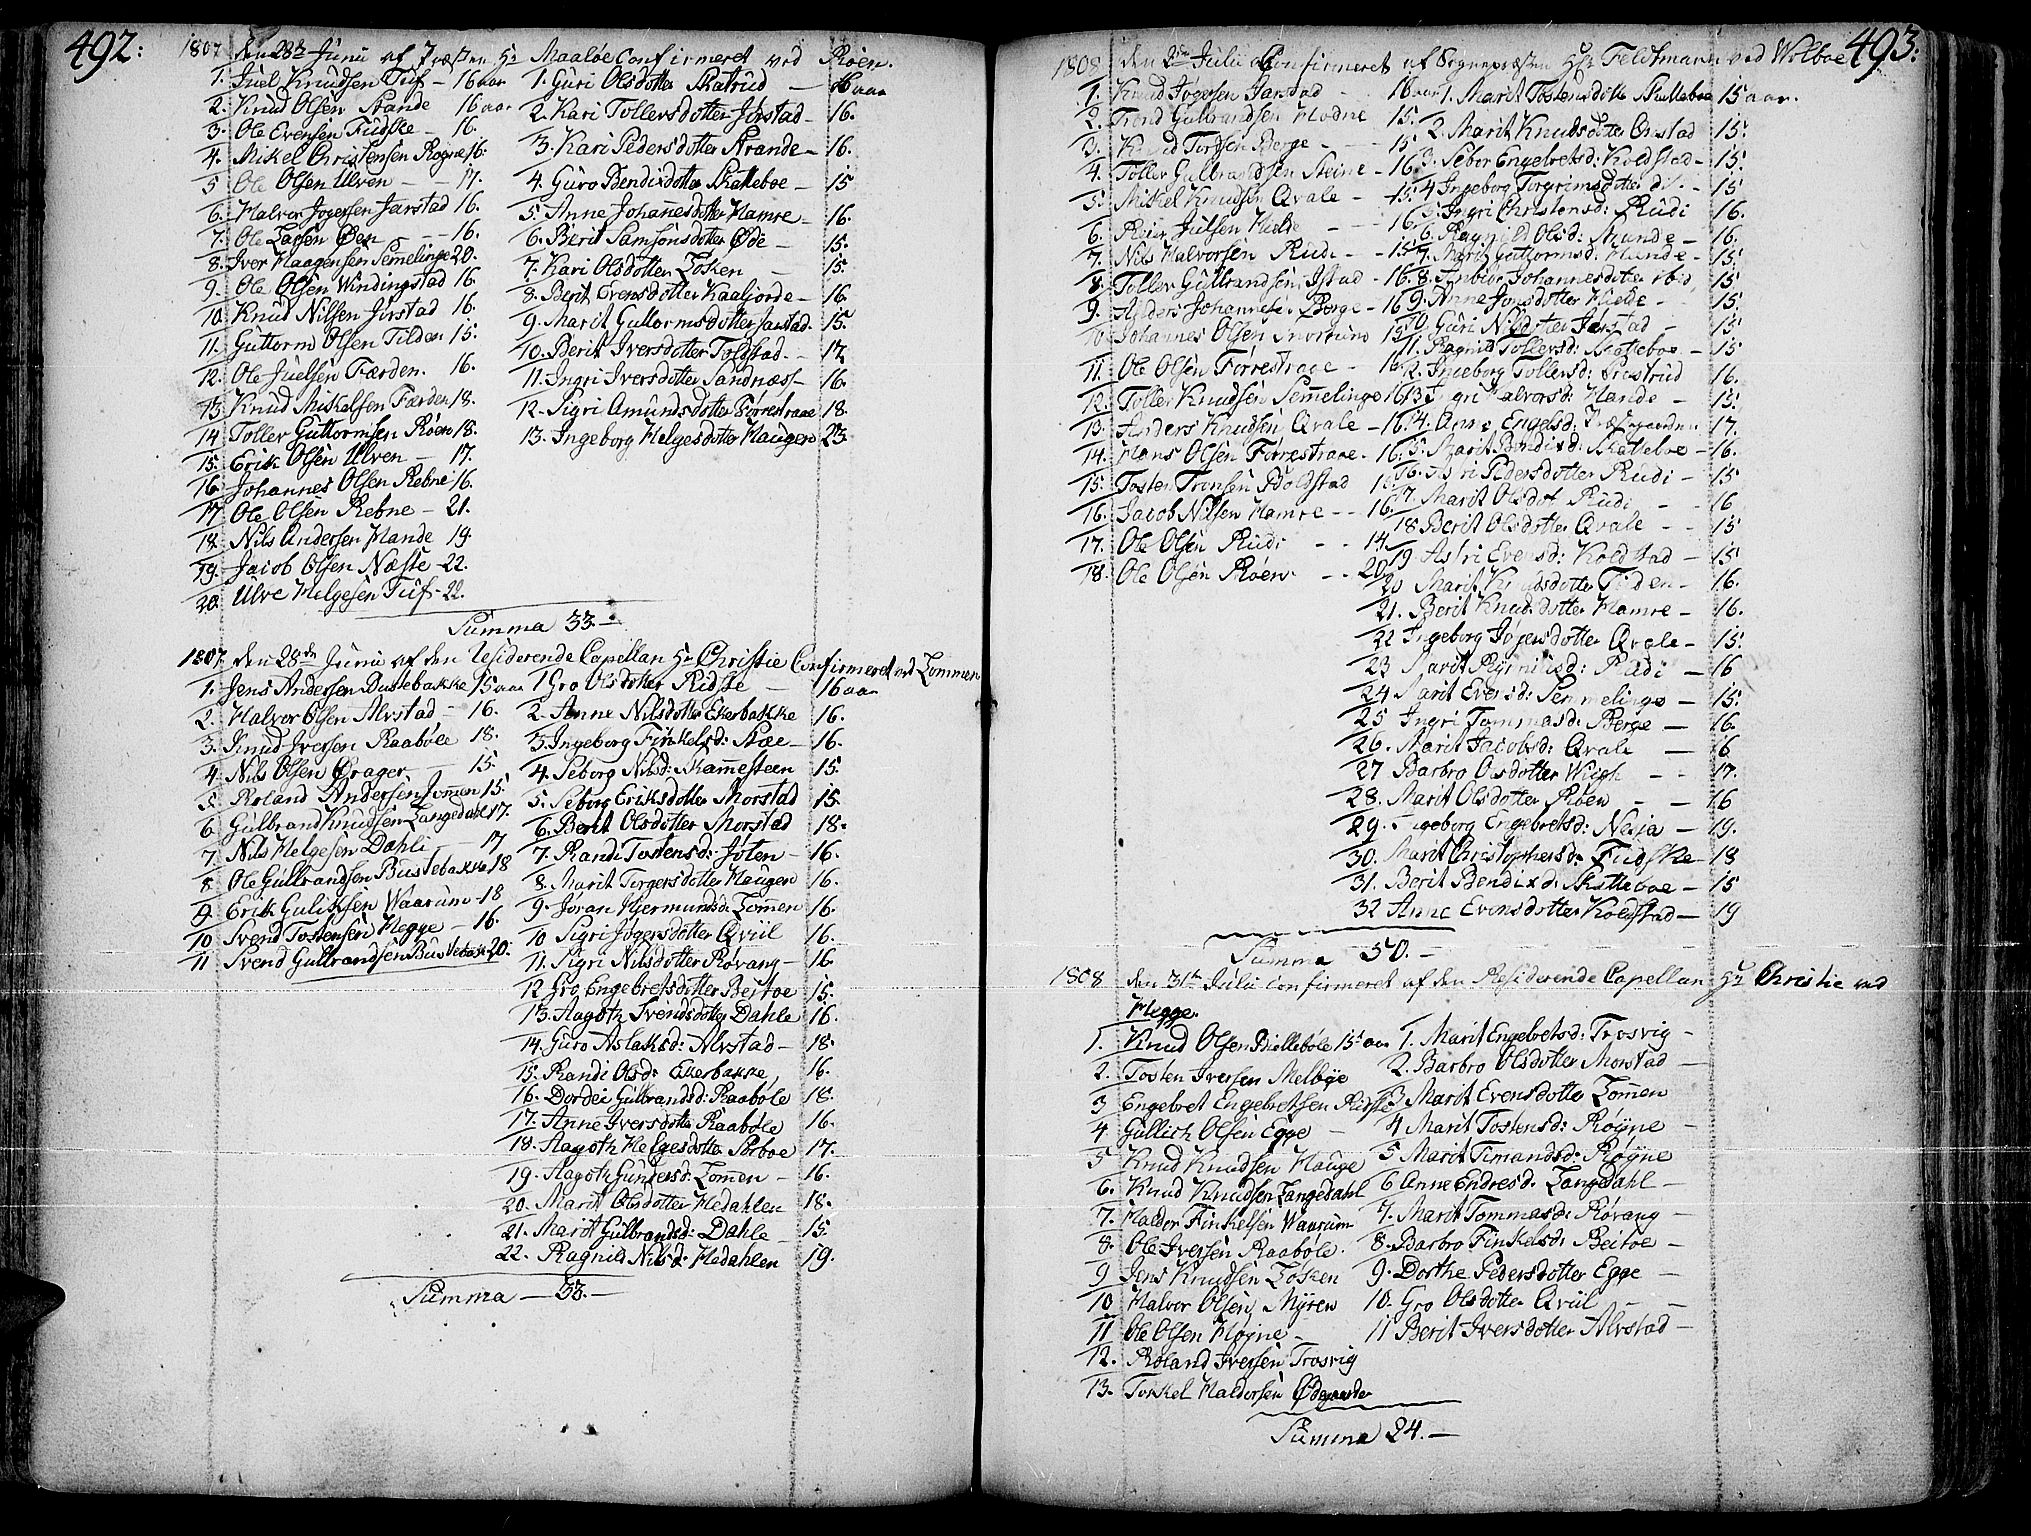 492:
1807 den 28de Junii af Præsten Hr Maalöe Confirmeret ved Röen.
1. Juel Knudsen Tuf - 16 aar
2. Knud Olsen Strande 16 aar
3. Ole Evensen Fudske - 16.
4. Mikel Christensen Rogne 16.
5 Ole Olsen Ulven - - 17.
6. Halvor Jogersen Jarstad 16.
7. Ole Larsen Öen - - 16.
8. Iver Haagensen Semelinge 20.
9. Ole Olsen Windingstad 16.
10. Knud Nilsen Jörstad 16.
11. Guttorm Olsen Tilden 15.
12. Ole Juelsen Færden. 16.
13. Knud Mikelsen Færden 18.
14 Toller Guttormsen Röen 18.
15. Erik Olsen Ulven - 17.
16. Johannes Olsen Rebne 16.
17. Ole Olsen Rebne - 21.
18. Nils Andersen Hande 19.
19. Jacob Olsen Næste - 22.
20. Ulve Helgesen Tuf - 22.
1. Guri Olsdotter Skatrud - 16 aar
2. Kari Tollersdotter Jörstad - 16.
3. Kari Pedersdotter Strande - 16.
4. Guro Bendixdotter Skatteboe - 15
5. Anne Johannesdotter Hamre - 16.
6. Berit Samsonsdotter Öde - 15.
7. Kari Olsdotter Losken - 15.
8. Berit Evensdotter Kaaljorde - 16.
9. Marit Guttormsdotter Jarstad. 15.
10. Berit Iversdotter Toldstad. - 17
11. Ingri Iversdotter Sandnæss - 16.
12. Sigri Amundsdotter Forrestraae 18.
13. Ingeborg Helgesdotter Haugen 23.
Summa 33. -
1807 den 28de Junii af den Residerende Capellan Hr Christie Confirmeret ved Lommen
1. Jens Andersen Bustebakke 15 aar
2. Halvor Olsen Alvstad - 16.
3. Knud Iversen Raaböle 18.
4. Nils Olsen Drager - 15.
5. Roland Andersen Jomen 15.
6. Gulbrand Knudsen Langedahl 17.
7. Nils Helgesen Dahle - 17
8. Ole Gulbrandsen Bustebakke 18
9. Erik Guliksen Waarum 18
10 Svend Tostensen Hegge - 16.
11 Svend Gulbrandsen Bustebak 20.
1 Gro Olsdotter Ridste - 16 aar
2. Anne Nilsdotter Ekerbakke 16.
3. Ingeborg Finkelsd: Moe - 16.
4. Seborg Nilsd: Skammesteen 15.
5. Seborg Eriksdotter Morstad 15.
6. Berit Olsdotter Morstad 18.
7. Randi Tostensd: Joten - 16.
8. Marit Torgersdotter Haugen 16.
9. Joran Hjermundsd: Lommen 16.
10 Sigri Jogersdotter Qviil 16.
11. Sigri Nilsdotter Rovang - 16
12 Gro Engebretsdotter Beitoe 15.
13. Aagoth Svendsdotter Dahle 16.
14. Guro Aslaksd: Alvstad - 18.
15. Randi Olsd: Ekerbakke, 16.
16. Dordei Gulbrandsd: Raaböle 18.
17. Anne Iversdotter Raaböle 16.
18. Aagoth Helgesdotter Belboe 17.
19. Aagoth Gundersd: Lomen - 16.
20. Marit Olsdotter Hedahlen 18.
21. Marit Gulbrandsd: Dahle - 15.
22. Ragnild Nilsd: Hedahlen 19.
Summa - 33. -
493.
1808 den 2den Julii Confirmeret af Sognepræsten Hr Feldtmann ved Wolboe
1. Knud Jogersen Jarstad - 16 aar
2. Trond Gulbrandsen Hodne 15.
3. Knud Tordsen Berge - - 15
4. Toller Gulbrandsen Steine - 16
5. Mikel Knudsen Qvale - 15.
6. Reier Julsen Hielde - - 16
7. Nils Halvorsen Rudi - 15.
8. Toller Gulbrandsen Istad - 16
9. Anders Johannesen Berge - 16
10. Johannes Olsen Snortrum 15
11. Ole Olsen Forrestraae - 16
12. Toller Knudsen Semelinge 16
13. Anders Knudsen Qvale - 16
14. Hans Olsen Forrestraae - 16
15. Tosten Tronsen Boldstad 16
16. Jacob Nilsen Hamre - - 16
17. Ole Olsen Rudi - - 14
18. Ole Olsen Röen - - 20
1. Marit Tostensdotter Skatteboe 15 aar.
2. Marit Knudsdotter Onstad 15.
3. Sebor Engebretsd: Koldstad - 15.
4 Ingeborg Torgrimsdotter dit. - 15
5. Ingri Christensd: Rudi 16.
6. Ragnild Olsd: Hande - 16.
7. Marit Guttormsd: Hande - 15.
8. Anbior Johannesdotter ibid 15
9. Anne Jonsdotter Hielde - 15.
10. Guri Nilsdotter Jörstad - 15
11. Ragnild Tollersd: Skatteboe - 15
12. Ingeborg Tollersd: Skattrud 16.
13. Ingri Halvorsd: Hande - 15.
14. Anne Engelsd: Præstegaarden 17.
15. Marit Bendixd: Skatteboe - 16.
16. Astri Pedersdotter Rudi - 15
17. Marit Olsdot Rudi - - 16
18 Berit Olsdotter Qvale - - 15
19 Astri Evensd: Koldstad - 15
20 Marit Knudsdotter Tilden - 16.
21. Berit Knudsdotter Hamre - 16.
22 Ingeborg Jogersdotter Qvale - 15.
23 Marit Reinildsd: Rudi - 16
24 Marit Eversd: Semmelinge - 15.
25 Ingri Tommasd: Berge - 16.
26. Marit Jacobsd: Qvale - 16
27 Barbro Olsdotter Wiigh - - 17.
28. Marit Olsdotter Röen - - 16
29. Ingeborg Engebretsd: Nesja - 19.
30. Marit Christophersd: Fudske - 18
31. Berit Bendixd: Skatteboe - 15
32 Anne Evensdotter Koldstad - 19
Summa 50. -
1808 den 31te Julii Confirmeret af den Residerende Capellan Hr Christie ved
Hegge.
1. Knud Olsen Bielleböle 15 aar
2. Tosten Iversen Melbye
3 Engebret Engebretsen Ridste
4 Gullich Olsen Egge -
5 Knud Knudsen Hauge
6. Knud Knudsen Langedahl
7. Haldor Finkelsen Waarum
8. Ole Iversen Raaböle.
9 Jens Knudsen Losken
10 Halvor Olsen Myren
11 Ole Olsen Høyne -
12. Roland Iversen Trosvig
13. Torkel Haldorsen Ödegaarden
1. Marit Engebretsd: Trosvig -
2. Barbro Olsdotter Morstad -
3 Marit Evensdotter Lommen
4 Marit Tostensd: Röyne -
5 Marit Timandsd: Röyne
6 Anne Endresd: Langedahl -
7. Marit Tommasd: Rovang -
8. Barbro Finkelsd: Beitoe -
9. Dorthe Pedersdotter Egge -
10. Gro Olsdotter Qviil - -
11 Berit Iversdotter Alvstad -
Summa 24. -